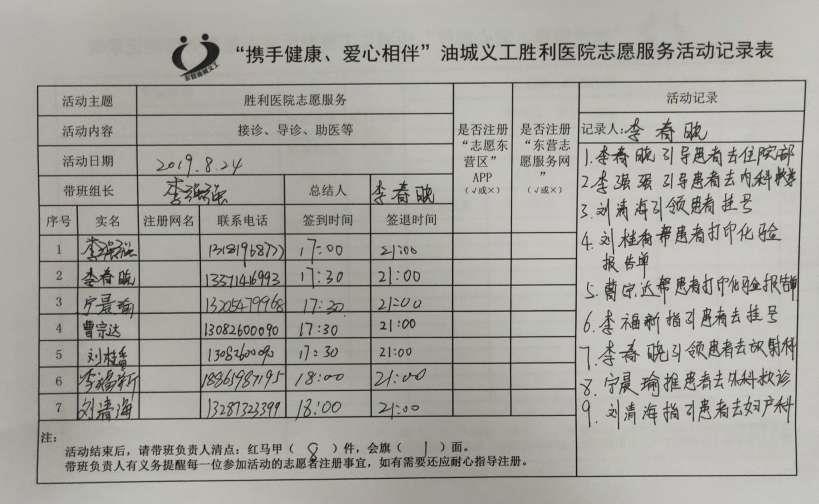 东营油城义工
“携手健康、爱心相伴”油城义工胜利医院志愿服务活动记录表
活动主题 胜利医院志愿服务 是否注册“志愿东营区”APP（√或×） 是否注册“东营志愿服务网”（√或×） 活动记录
活动内容 接诊、导诊、助医等
记录人:李春晓
活动日期 2019.8.24
带班组长 李强强 总结人 李春晓
序号 实名 注册网名 联系电话 签到时间 签退时间
1 李强强 17:00 21:00
2 李春晓 13371416993 17:30 21:00
3 宁晨瑜 13205479968 17:30 21:00
4 曹宗达 13082600090 17:30 21:00
5 刘桂香 17:30 21:00
6 李福新 18861987195 18:00 21:00
7 刘清海 13287323399 18:00 21:00
1.李春晓引导患者去住院部
2.李强强引导患者去内科
3.刘清海引领患者挂号
4.刘桂香帮患者打印化验
报告单
5.曹宗达帮患者打印化验报告单
6.李福新指引患者去挂号
7.李春晓引领患者去放射科
8.宁晨瑜推患者去外科救诊
9.刘清海指引患者去妇产科
注:
活动结束后，请带班负责人清点：红马甲（8）件，会旗（1）面。
带班负责人有义务提醒每一位参加活动的志愿者注册事宜，如有需要还应耐心指导注册。